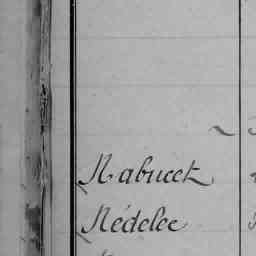 Nabucet
Nédelec